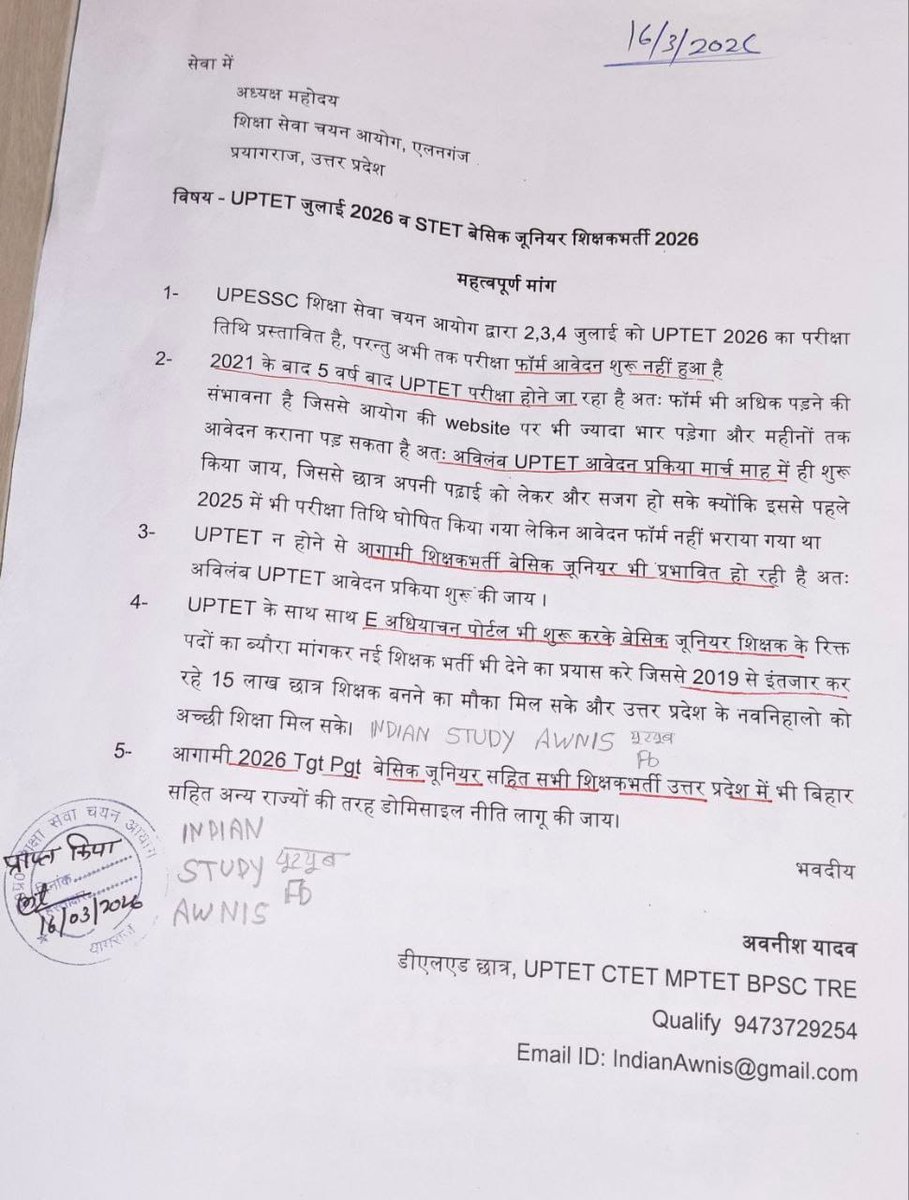 16/3/2026
सेवा में
अध्यक्ष महोदय
शिक्षा सेवा चयन आयोग, एलनगंज
प्रयागराज, उत्तर प्रदेश
विषय - UPTET जुलाई 2026 व STET बेसिक जूनियर शिक्षकभर्ती 2026
महत्वपूर्ण मांग
1- UPESSC शिक्षा सेवा चयन आयोग द्वारा 2,3,4 जुलाई को UPTET 2026 का परीक्षा
तिथि प्रस्तावित है, परन्तु अभी तक परीक्षा फॉर्म आवेदन शुरू नहीं हुआ है
2- 2021 के बाद 5 वर्ष बाद UPTET परीक्षा होने जा रहा है अतः फॉर्म भी अधिक पड़ने की
संभावना है जिससे आयोग की website पर भी ज्यादा भार पड़ेगा और महीनों तक
आवेदन कराना पड़ सकता है अतः अविलंब UPTET आवेदन प्रकिया मार्च माह में ही शुरू
किया जाय, जिससे छात्र अपनी पढ़ाई को लेकर और सजग हो सके क्योंकि इससे पहले
2025 में भी परीक्षा तिथि घोषित किया गया लेकिन आवेदन फॉर्म नहीं भराया गया था
3- UPTET न होने से आगामी शिक्षकभर्ती बेसिक जूनियर भी प्रभावित हो रही है अतः
अविलंब UPTET आवेदन प्रकिया शुरू की जाय ।
4- UPTET के साथ साथ E अधियाचन पोर्टल भी शुरू करके बेसिक जूनियर शिक्षक के रिक्त
पदों का ब्यौरा मांगकर नई शिक्षक भर्ती भी देने का प्रयास करे जिससे 2019 से इंतजार कर
रहे 15 लाख छात्र शिक्षक बनने का मौका मिल सके और उत्तर प्रदेश के नवनिहालो को
अच्छी शिक्षा मिल सके। INDIAN STUDY AWNIS यूट्यूब
Fb
5- आगामी 2026 Tgt Pgt बेसिक जूनियर सहित सभी शिक्षकभर्ती उत्तर प्रदेश में भी बिहार
सहित अन्य राज्यों की तरह डोमिसाइल नीति लागू की जाय।
INDIAN
STUDY यूट्यूब
AWNIS Fb
शिक्षा सेवा चयन आयोग
प्राप्त किया
दिनांक
16/03/2026
भवदीय
अवनीश यादव
डीएलएड छात्र, UPTET CTET MPTET BPSC TRE
Qualify 9473729254
Email ID: IndianAwnis@gmail.com